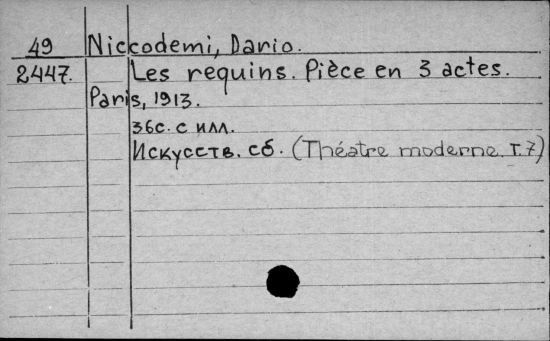 49 Niccodemi, Dario.
2447. Les requins. Pièce en 3 actes.
Paris, 1913.
36с. с илл.
Искусств. сб. (Théatre moderne. T. 7)